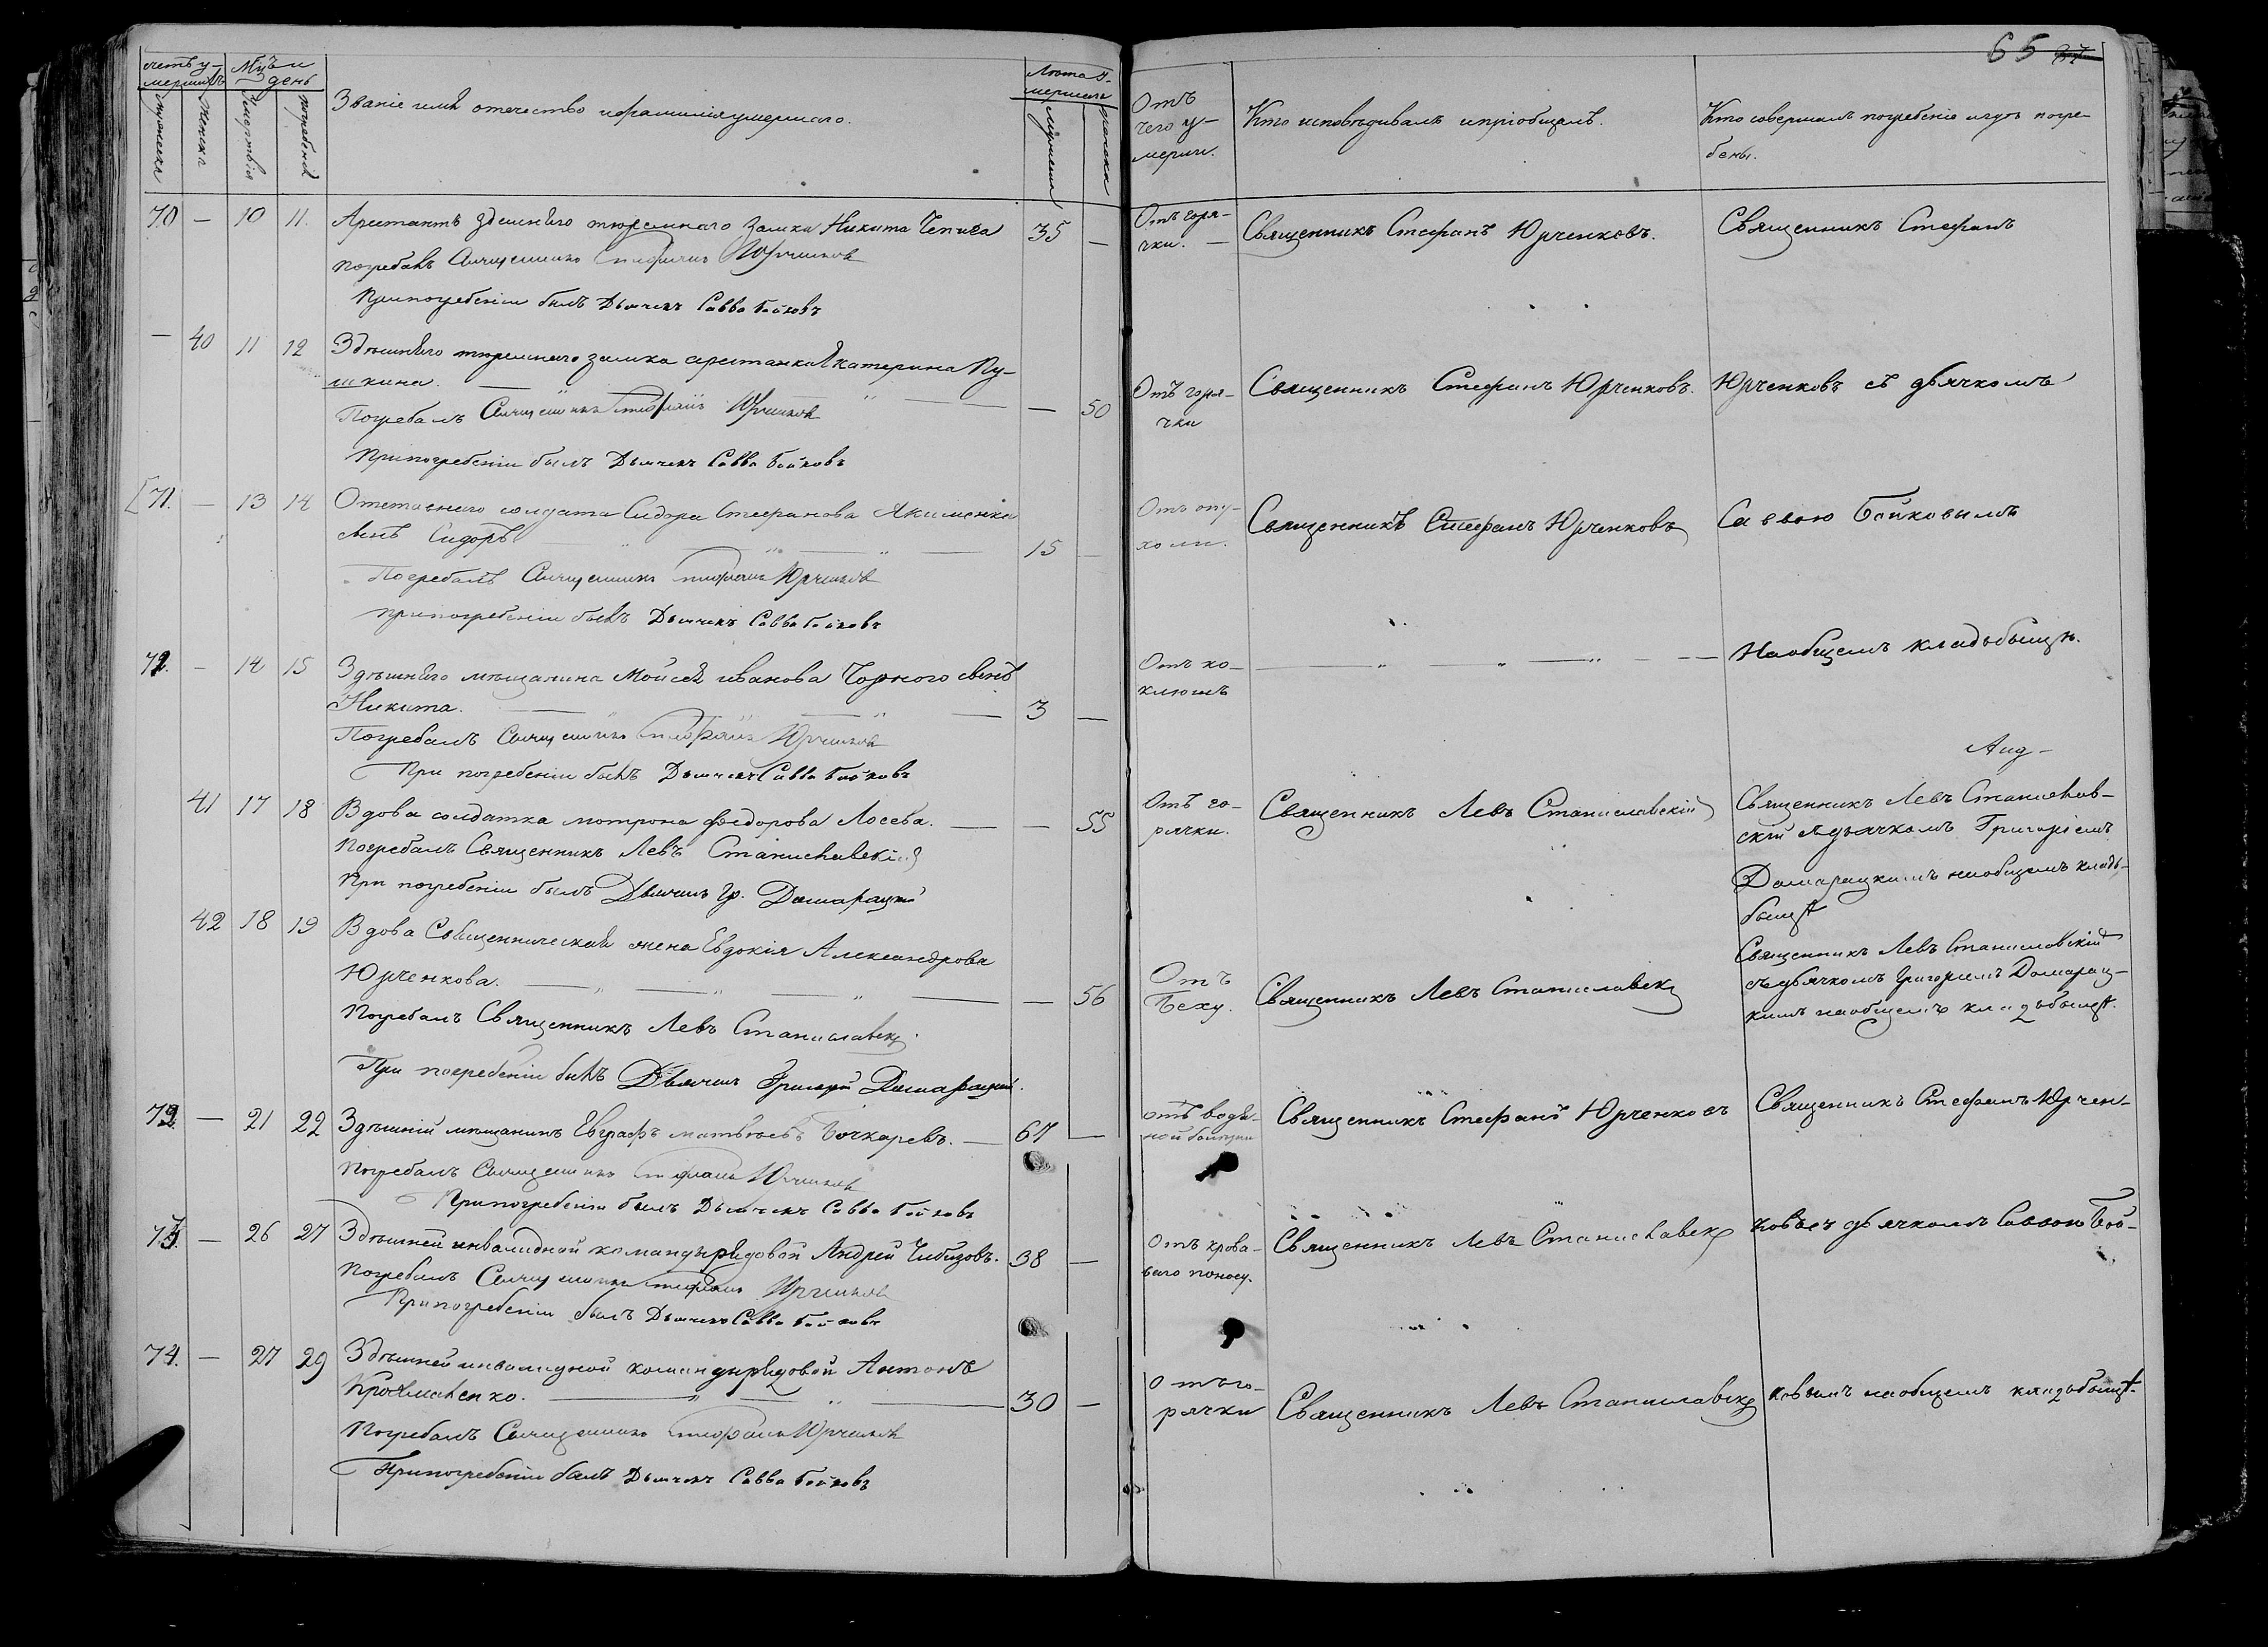 65
счетъ у-
мершихъ
Мцъ и
день
Лѣта у-
мершаго
мужеска
женска
Смертнія
погребенія
Званіе имя отечество и фамилія умершаго.
мужеска
женска
Отъ
чего у-
мерли.
Кто исповѣдивалъ и пріобщалъ.
Кто совершалъ погребеніе и гдѣ погре-
бены.
70 — 10 11. Арестантъ здешнѣго тюремнаго замка Никита Чепига 35 —
Погребалъ Священникъ Стефанъ Юрченковъ
При погребеніи былъ Дьячекъ Савва Бойковъ
Отъ горя-
чки. —
Священникъ Стефанъ Юрченковъ.
Священникъ Стефанъ
— 40 11 12 Здѣшнѣго тюремнаго замка арестанка Екатерина Пу-
шкина. — 50
Погребалъ Священникъ Стефанъ Юрченков
При погребеніи былъ Дьячекъ Савва Бойковъ
Отъ горя-
чки
Священникъ Стефанъ Юрченковъ.
Юрченковъ съ дьячкомъ
71. — 13 14 Отставнаго солдата Сидора Стефанова Якименка
сынъ Сидоръ 15 —
Погребалъ Священникъ Стефанъ Юрченков
При погребеніи былъ Дьячекъ Савва Бойковъ
Отъ опу-
холи.
Священникъ Стефанъ Юрченковъ
Саввою Бойковымъ
72. — 14 15 Здѣшнѣго мѣщанина Мойсея иванова Чорного сынъ
Никита. 3 —
Погребалъ Священникъ Стефанъ Юрченков
При погребеніи былъ Дьячекъ Савва Бойковъ
Отъ ко-
клюшъ
На общемъ кладьбыщѣ.
41 17 18 Вдова солдатка мотрона федорова Лосева. — — 55
Погребалъ Священникъ Левъ Станиславскій
При погребеніи былъ Дьячекъ Гр. Домарацкій
Отъ го-
рячки.
Священникъ Левъ Станиславскій
Священникъ Левъ Станислав-
скій съ дьячкомъ Григоріемъ
Домарацкимъ на общемъ кладь-
быщѣ
42 18 19 Вдова Священническая жена Евдокія Александрова
Юрченкова. — 56
Погребалъ Священникъ Левъ Станиславск
При погребеніи былъ Дьячекъ Григорій Домарацкій.
Отъ
Священникъ Левъ Станиславск
Священникъ Левъ Станиславскій
съ дьячкомъ Григоріемъ Домарац-
кимъ на общемъ кладьбыщѣ.
73 — 21 22 Здѣшній мѣщанинъ Евграфъ матвѣевъ Бочкаревъ. — 67 —
Погребалъ Священникъ Стефанъ Юрченков
При погребеніи былъ Дьячекъ Савва Бойковъ
отъ водя-
ной болѣзни
Священникъ Стефанъ Юрченковъ
Священникъ Стефанъ Юрчен-
— 26 27 Здѣшней инвалидной команды рядовой Андрей Чибизовъ. 38 —
Погребалъ Священникъ Стефанъ Юрченков
При погребеніи былъ Дьячекъ Савва Бойковъ
Отъ крова-
ваго поносу.
Священникъ Левъ Станиславск
ковъ съ дьячкомъ Саввою Бой-
74. — 27 29 Здѣшней инвалидной команды рядовой Антонъ
30 —
Погребалъ Священникъ Стефанъ Юрченков
При погребеніи былъ Дьячекъ Савва Бойковъ
Отъ го-
рячки
Священникъ Левъ Станиславск
ковымъ на общемъ кладьбыщѣ.